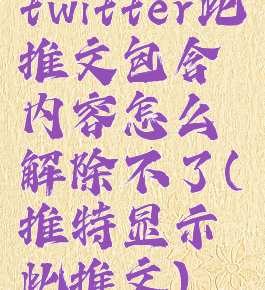 twitter此
推文包含
内容怎么
解除不了(
推特显示
此推文)